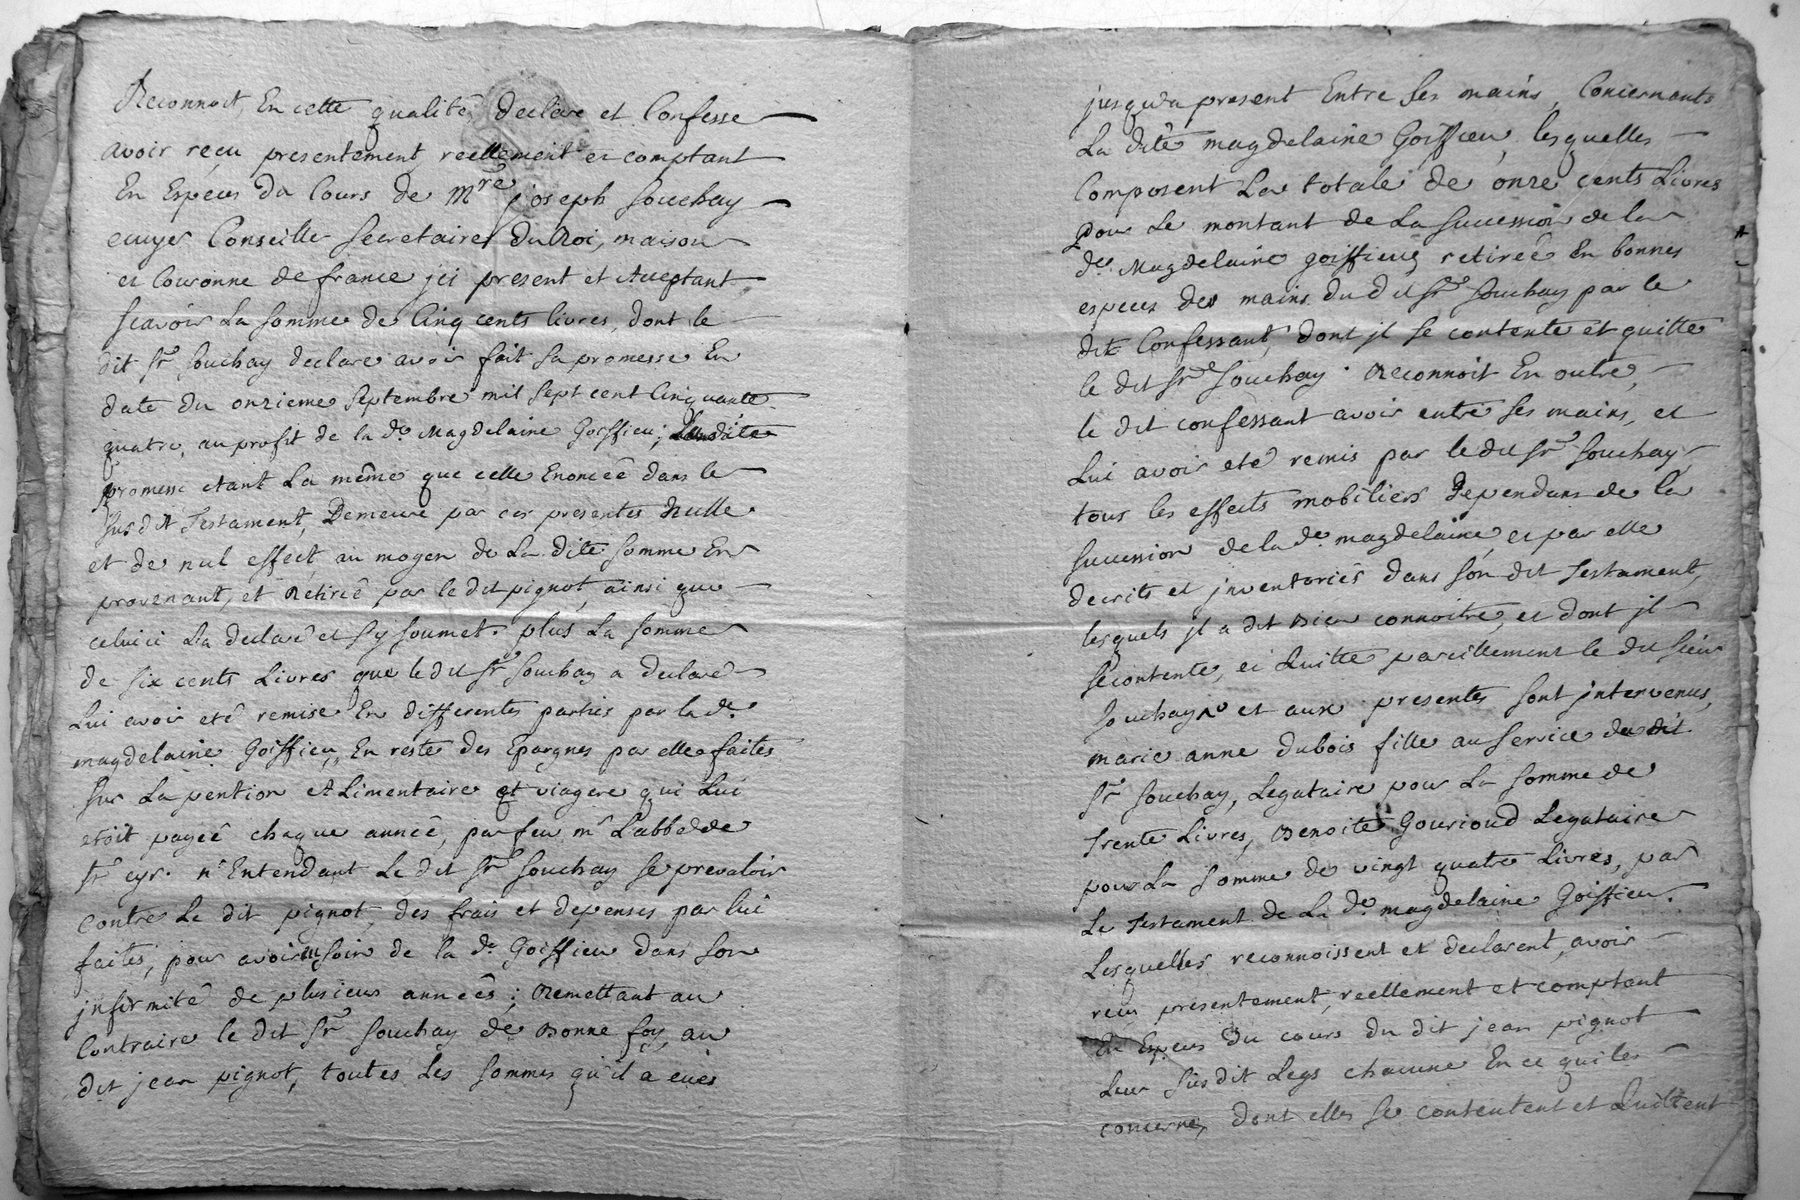 Reconnoit, En cette qualité declare et Confesse
avoir reçu presentement reellement et comptant
En Especes du Cours de Mre joseph Souchay
ecuyer Conseiller Secretaire du Roi, maison
et Couronne de france jci present et Acceptant
scavoir La somme de Cinq cents livres, dont le
dit Sr Souchay declare avoir fait sa promesse En
date du onzieme Septembre mil sept cent Cinquante
quatre, au profit de la de Magdelaine Goiffieu; Lad dite
promesse etant La même que celle Enoncéé dans le
Susdit Testament, Demeure par ces presentes Nulle
et de nul effect, au moyen de La dite somme En
provenant, et Retiréé par le dit pignot, ainsi que
celuici L'a declaré et s'y soumet. plus La somme
de six cents Livres que le dit Sr Souchay a declaré
Lui avoir eté remise En differentes parties par la de
magdelaine Goiffieu, En reste des Epargnes par elle faites
sur La pention Alimentaire et viagere qui Lui
etoit payéé chaque annéé, par feu mr L'abbé de
St cyr. n'Entendant Le dit Sr Souchay se prevaloir
contre Le dit pignot, des frais et depenses par lui
faites, pour avoir eu soin de la de Goiffieu dans son
jnfirmité de plusieurs annéés; Remettant au
Contraire le dit Sr Souchay de Bonne foy, au
dit jean pignot, toutes Les sommes qu'il a eües
jusqu'a present Entre ses mains, Concernants
La dite magdelaine Goiffieu, lesquelles
Composent La totale de onze cents Livres
pour Le montant de La succession de la
de Magdelaine goiffieu retiréé En bonnes
especes des mains du dit Sr Souchay par le
dit Confessant, dont jl se contente et quitte
le dit Sr Souchay. Reconnoit En outre,
le dit confessant avoir entre ses mains, et
Lui avoir eté remis par le dit Sr Souchay,
tous les effects mobiliers Dependans de la
succession de la de magdelaine, et par elle
decrits et jnventoriés dans son dit Testament,
lesquels jl a dit Bien connoitre, et dont jl
se contente, et Quitte pareillement le dit sieur
Souchay et aux presentes sont jntervenus,
marie anne dubois fille au service du dit
Sr Souchay, Legataire pour La somme de
Trente Livres, Benoite Gourioud Legataire
pour La somme de vingt quatre Livres, par
Le Testament de La de magdelaine Goiffieu.
Lesquelles reconnoissent et declarent, avoir
recu presentement, reellement et comptant
En Especes du cours du dit jean pignot
Leur susdit Legs chacune En ce qui les
concerne, dont elles se contentent et Quittent